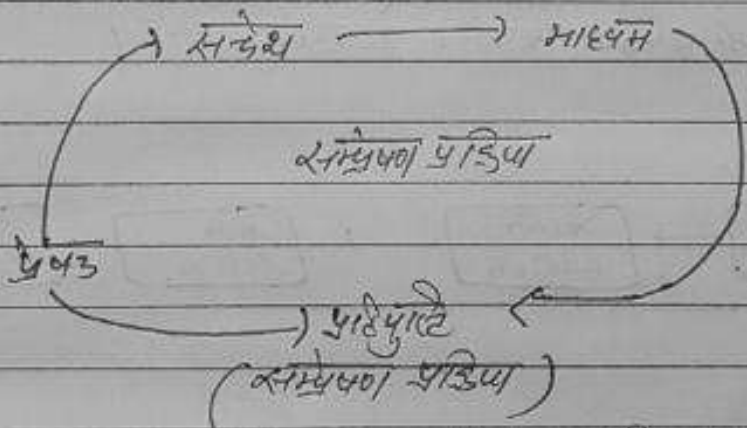 सन्देश माध्यम
सम्प्रेषण प्रक्रिया
प्रेषक
प्रतिपुष्टि
(सम्प्रेषण प्रक्रिया)